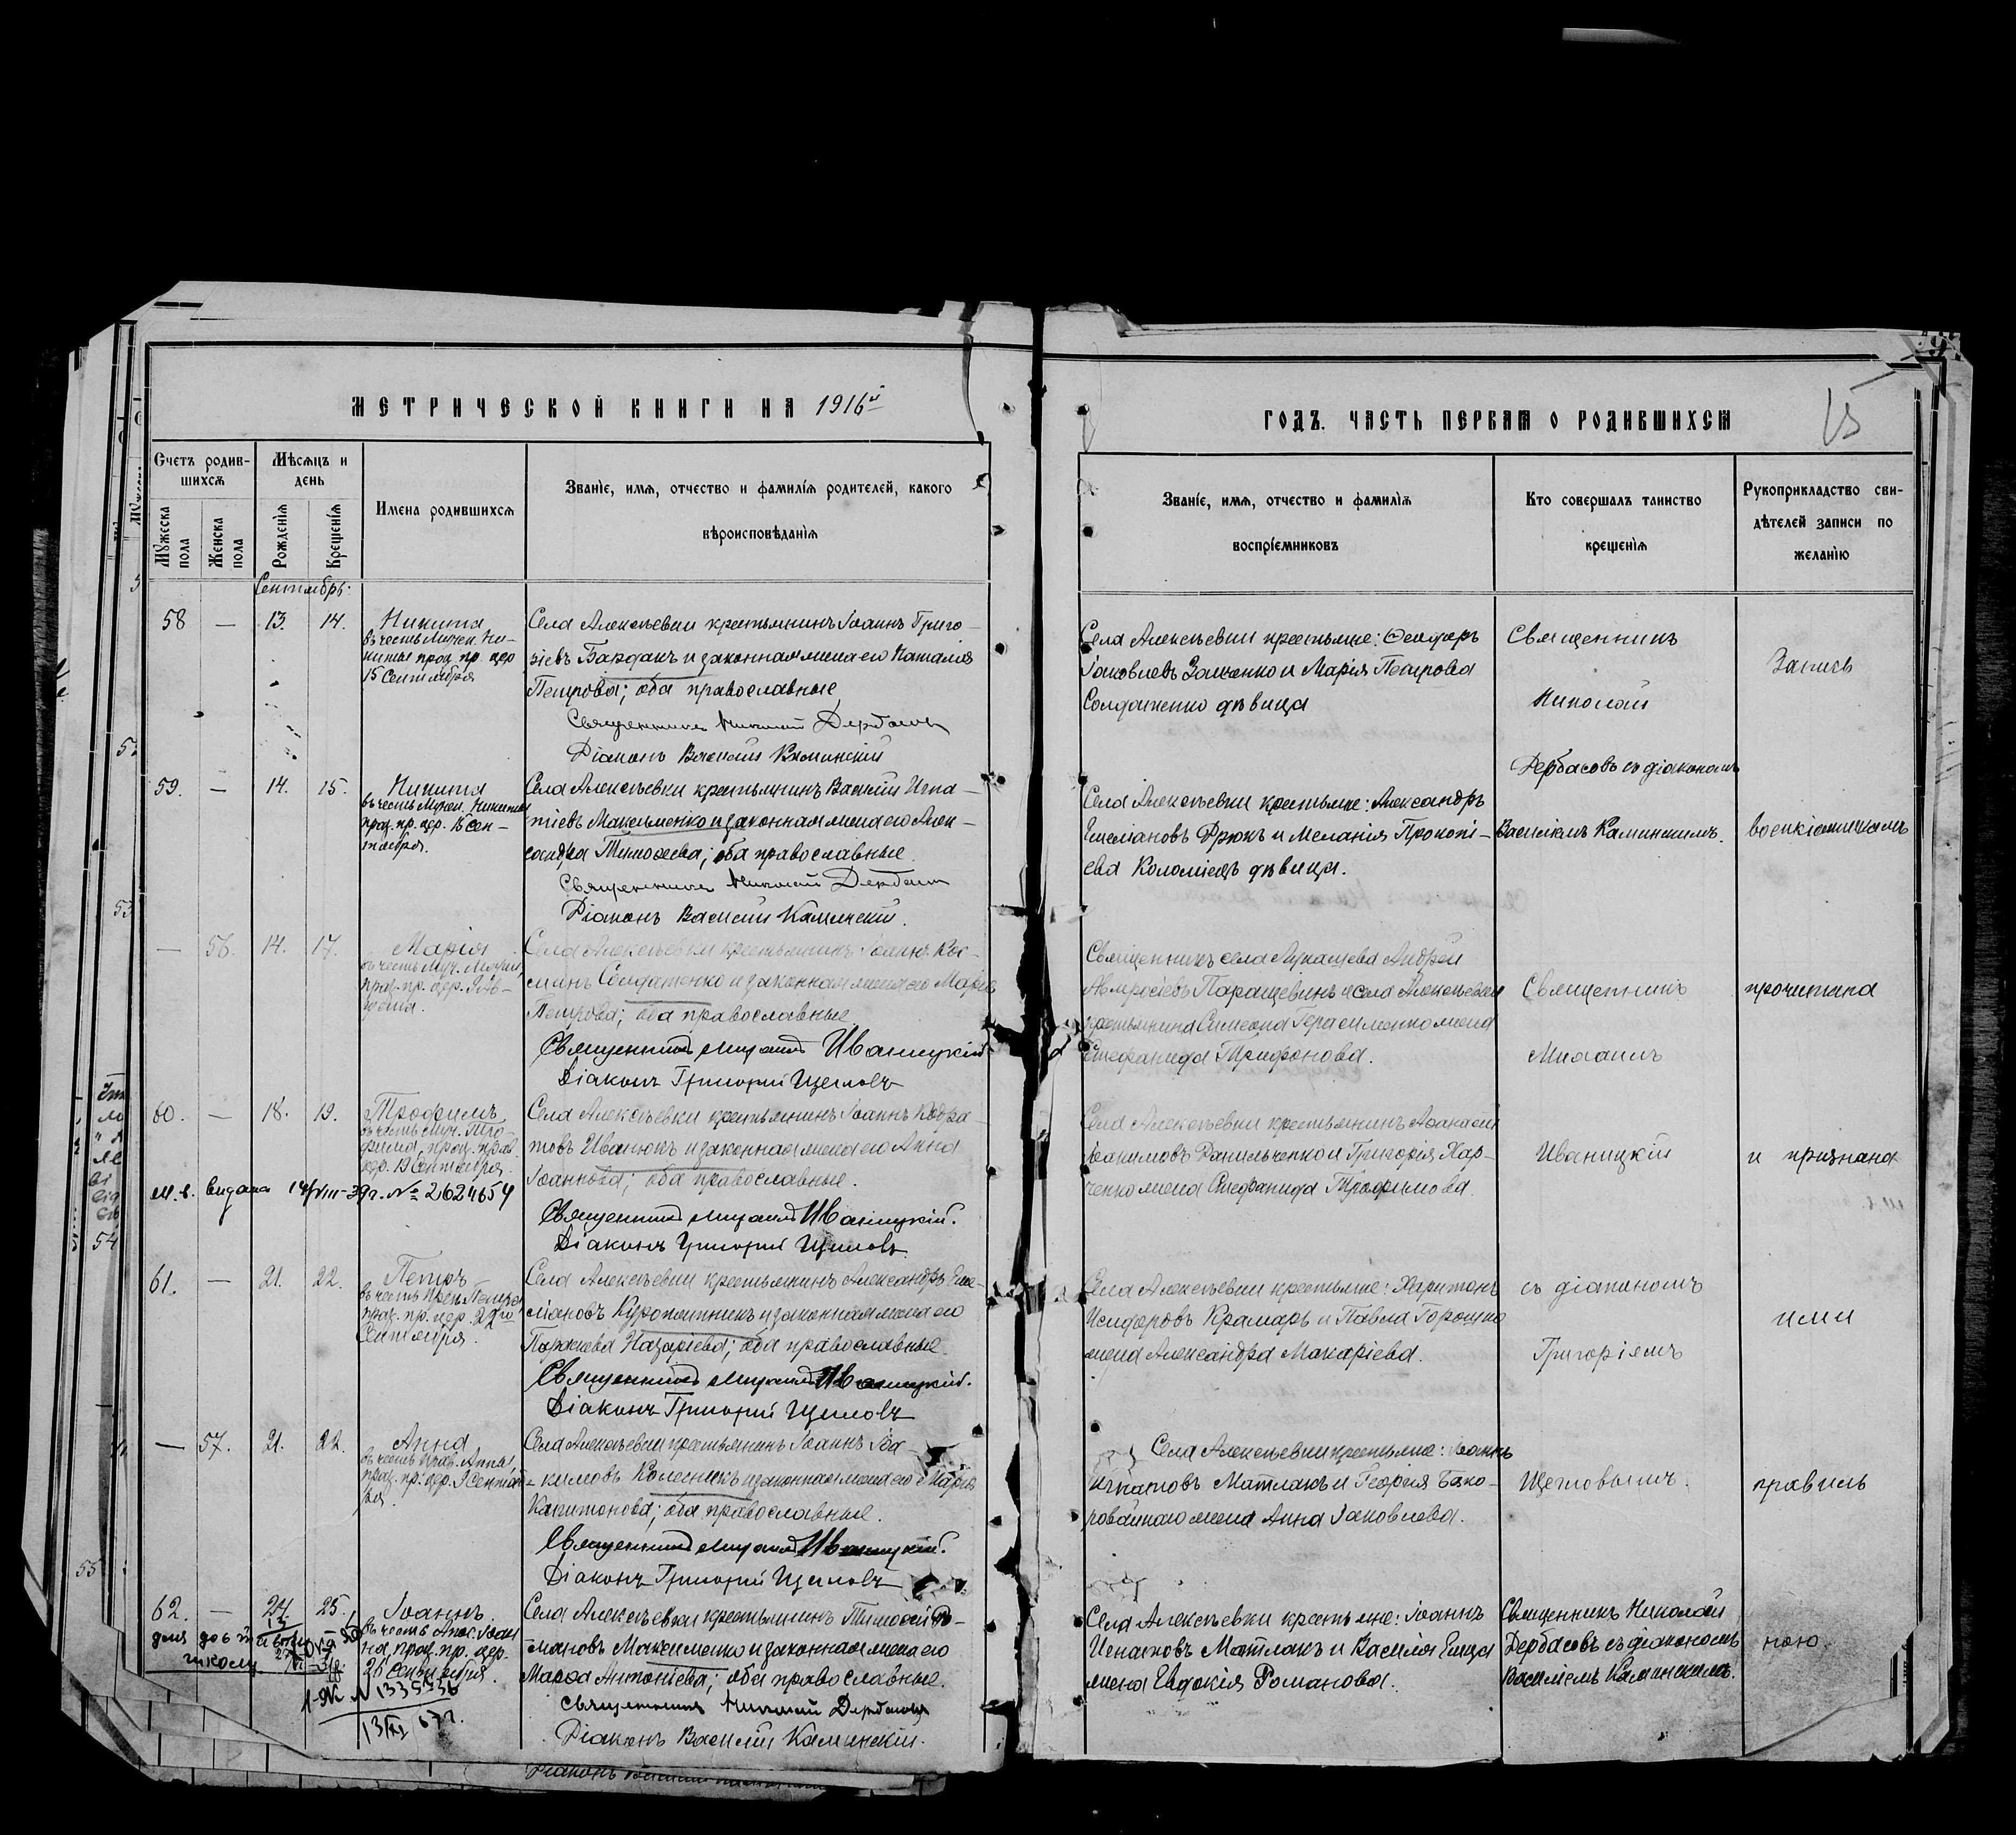 МЕТРИЧЕСКОЙ КНИГИ НА 1916й
ГОДЪ. ЧАСТЬ ПЕРВАЯ О РОДИВШИХСЯ
Счетъ родив-
шихся
Мѣсяцъ и
день
Мужеска
пола
Женска
пола
Рожденія
Крещенія
Имена родившихся
Званіе, имя, отчество и фамилія родителей, какого
вѣроисповѣданія
Званіе, имя, отчество и фамилія
воспріемниковъ
Кто совершалъ таинство
крещенія
Рукоприкладство сви-
дѣтелей записи по
желанію
Сентябрь.
58 — 13. 14.
Никита
въ честь Мучен. Ни-
киты праз. пр. цер
15 Сентября
Села Алексѣевки крестьянинъ Іоаннъ Григо-
ріевъ Бардакъ и законная жена его Наталія
Петрова; оба православные
Священникъ Николай Дербасовъ
Діаконъ Василій Каминскій
Села Алексѣевки крестьяне: Ѳеодоръ
Іаковлевъ и Марія Петрова
Солдатенко дѣвица
Священникъ
Николай
Дербасовъ съ діакономъ
Запись
59. — 14. 15.
Никита
въ честь Мучен. Никиты
праз. пр. цер. 15 Сен-
тября.
Села Алексѣевки крестьянинъ Василій Игна-
тіевъ Максименко и законная жена его Алек-
сандра Тимоѳеева; оба православные.
Священникъ Николай Дербасовъ
Діаконъ Василій Каминскій.
Села Алексѣевки крестьяне: Александръ
Емеліановъ Дрюкъ и Меланія Прокопі-
ева Коломіецъ дѣвица.
Василіемъ Каминскимъ.
— 56. 14. 17.
Марія
въ честь Муч. Маріи,
праз. пр. цер.
Села Алексѣевки крестьянинъ Іоаннъ Кос-
минъ Солдатенко и законная жена его Марія
Петрова; оба православные.
Священникъ Михаилъ Иваницкій
Діаконъ Григорій Щегловъ
Священникъ села Лукашева Андрей
Амвросіевъ Паращевинъ и села Алексѣевки
крестьянина Симеона Герасименко жена
Стефанида Трифонова.
Священникъ
Михаилъ
прочитана
60. — 18. 19.
Трофимъ,
въ честь Муч. Тро-
фима, праз. прав.
цер. 19 Сентября.
Села Алексѣевки крестьянинъ Іоаннъ Кодра-
товъ Иванюкъ и законная жена его Анна
Іоаннова; оба православные.
Священникъ Михаилъ Иваницкій.
Діаконъ Григорій Щегловъ
видана 14/VIII-39г. № 2624654
Села Алексѣевки крестьянинъ Аѳанасій
Іоакимовъ Данильченко и Григорія Хар-
ченко жена Стефанида Трофимова.
Иваницкій
и признана
61. — 21. 22.
Петръ
въ честь Преп. Петра,
праз. пр. цер.
Сентября.
Села Алексѣевки крестьянинъ Александръ Еме-
ліановъ Куропятникъ и законная жена его
Параскева Назаріева; оба православные.
Священникъ Михаилъ Иваницкій.
Діаконъ Григорій Щегловъ
Села Алексѣевки крестьяне: Харитонъ
Исидоровъ Крамарь и Павла
жена Александра Макаріева.
съ діакономъ
Григоріемъ
ими
— 57. 21. 22.
Анна
въ честь Прав. Анны,
праз. пр. цер. 9 Сентяб-
ря.
Села Алексѣевки крестьянинъ Іоаннъ Іоа-
кимовъ Колесникъ и законная жена его Марія
Капитонова; оба православные.
Священникъ Михаилъ Иваницкій.
Діаконъ Григорій Щегловъ
Села Алексѣевки крестьяне: Іоаннъ
Игнатовъ Матлакъ и Георгія
жена Анна Іаковлева.
Щегловымъ.
62. — 24. 25.
Іоаннъ.
въ честь Апос. Іоан
на, праз. пр. цер.
Сентября.
Села Алексѣевки крестьянинъ Тимоѳей Ро-
мановъ Максименко и законная жена его
Марѳа Антоніева; оба православные.
Священникъ Николай Дербасовъ
Діаконъ Василій Каминскій.
школу
№ 1335336
Села Алексѣевки крестьяне: Іоаннъ
Игнатовъ Матлакъ и Василія
жена Евдокія Романова.
Священникъ Николай
Дербасовъ съ діакономъ
Василіемъ Каминскимъ.